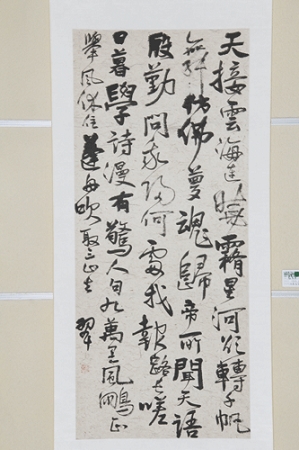 天接雲濤連曉霧星河欲轉千帆
舞彷彿夢魂歸帝所聞天語
殷勤問我歸何處我報路長嗟
日暮學詩漫有驚人句九萬里風鵬正
舉風休住蓬舟吹取三山去